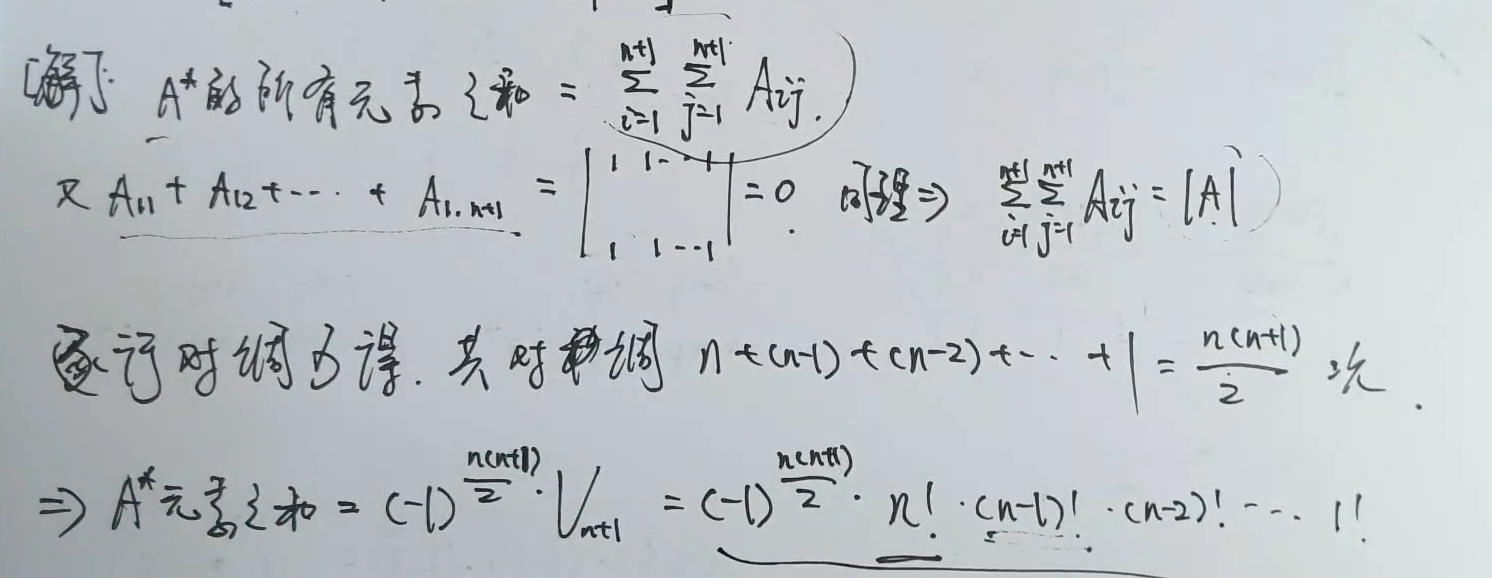 [解]: A*的所有元素之和 = ∑_{i=1}^{n+1} ∑_{j=1}^{n+1} A_{ij}.
又 A_{11} + A_{12} + ⋯ + A_{1.n+1} = | 1 1 ⋯ 1 ; 1 1 ⋯ 1 | = 0. 同理⇒ ∑_{i=1}^{n+1} ∑_{j=1}^{n+1} A_{ij} = |A|
逐行对调可得. 共对调 n+(n-1)+(n-2)+⋯+1 = \frac{n(n+1)}{2} 次.
⇒ A*元素之和 = (-1)^{\frac{n(n+1)}{2}} · V_{n+1} = (-1)^{\frac{n(n+1)}{2}} · n! · (n-1)! · (n-2)! ⋯ 1!